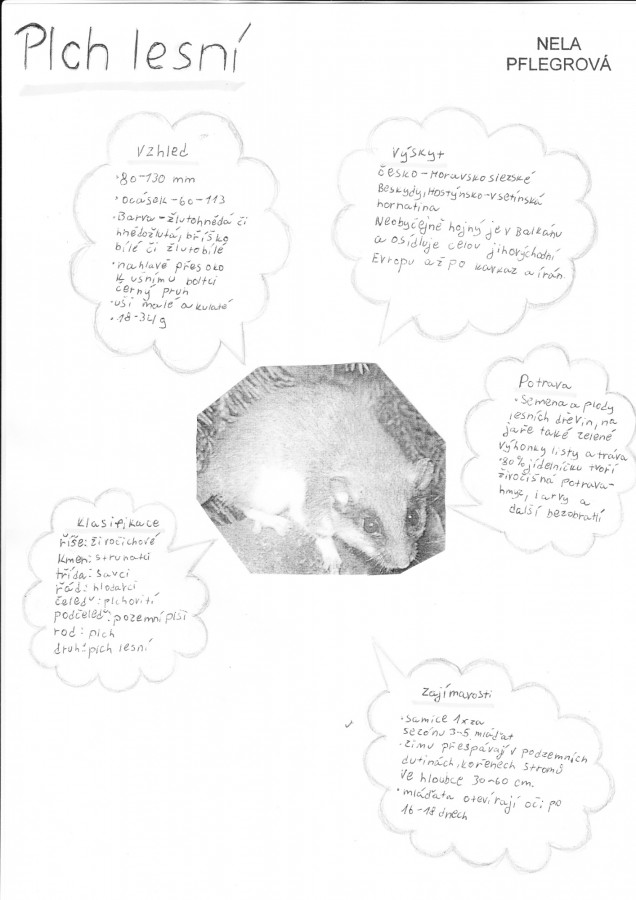 Plch lesní
NELA
PFLEGROVÁ
Vzhled
• 80-130 mm
• ocásek-60-113
• Barva-žlutohnědá či
hnědožlutá, bříško
bílé či žlutobílé
• na hlavě přes oko
k ušnímu boltci
černý pruh
• uši malé a kulaté
• 18-34g
Výskyt
Česko-Moravskoslezské
Beskydy, Hostýnsko-vsetínská
hornatina
Neobyčejně hojný je v Balkánu
a osidluje celou jihovýchodní
Evropu až po Kavkaz a írán
Potrava
• Semena a plody
lesních dřevin, na
jaře také zelené
výhonky listy a tráva
• 80% jídelníčku tvoří
živočišná potrava-
hmyz, larvy a
další bezobratlí
Klasifikace
říše: živočichové
kmen: strunatci
třída: savci
řád: hlodavci
čeleď: plchovití
podčeleď: pozemní plši
rod: plch
druh: plch lesní
Zajímavosti
• samice 1x za
sezónu 3-5 mláďat
• zimu přespávají v podzemních
dutinách, kořenech stromů
ve hloubce 30-60 cm.
• mláďata otevírají oči po
16-18 dnech